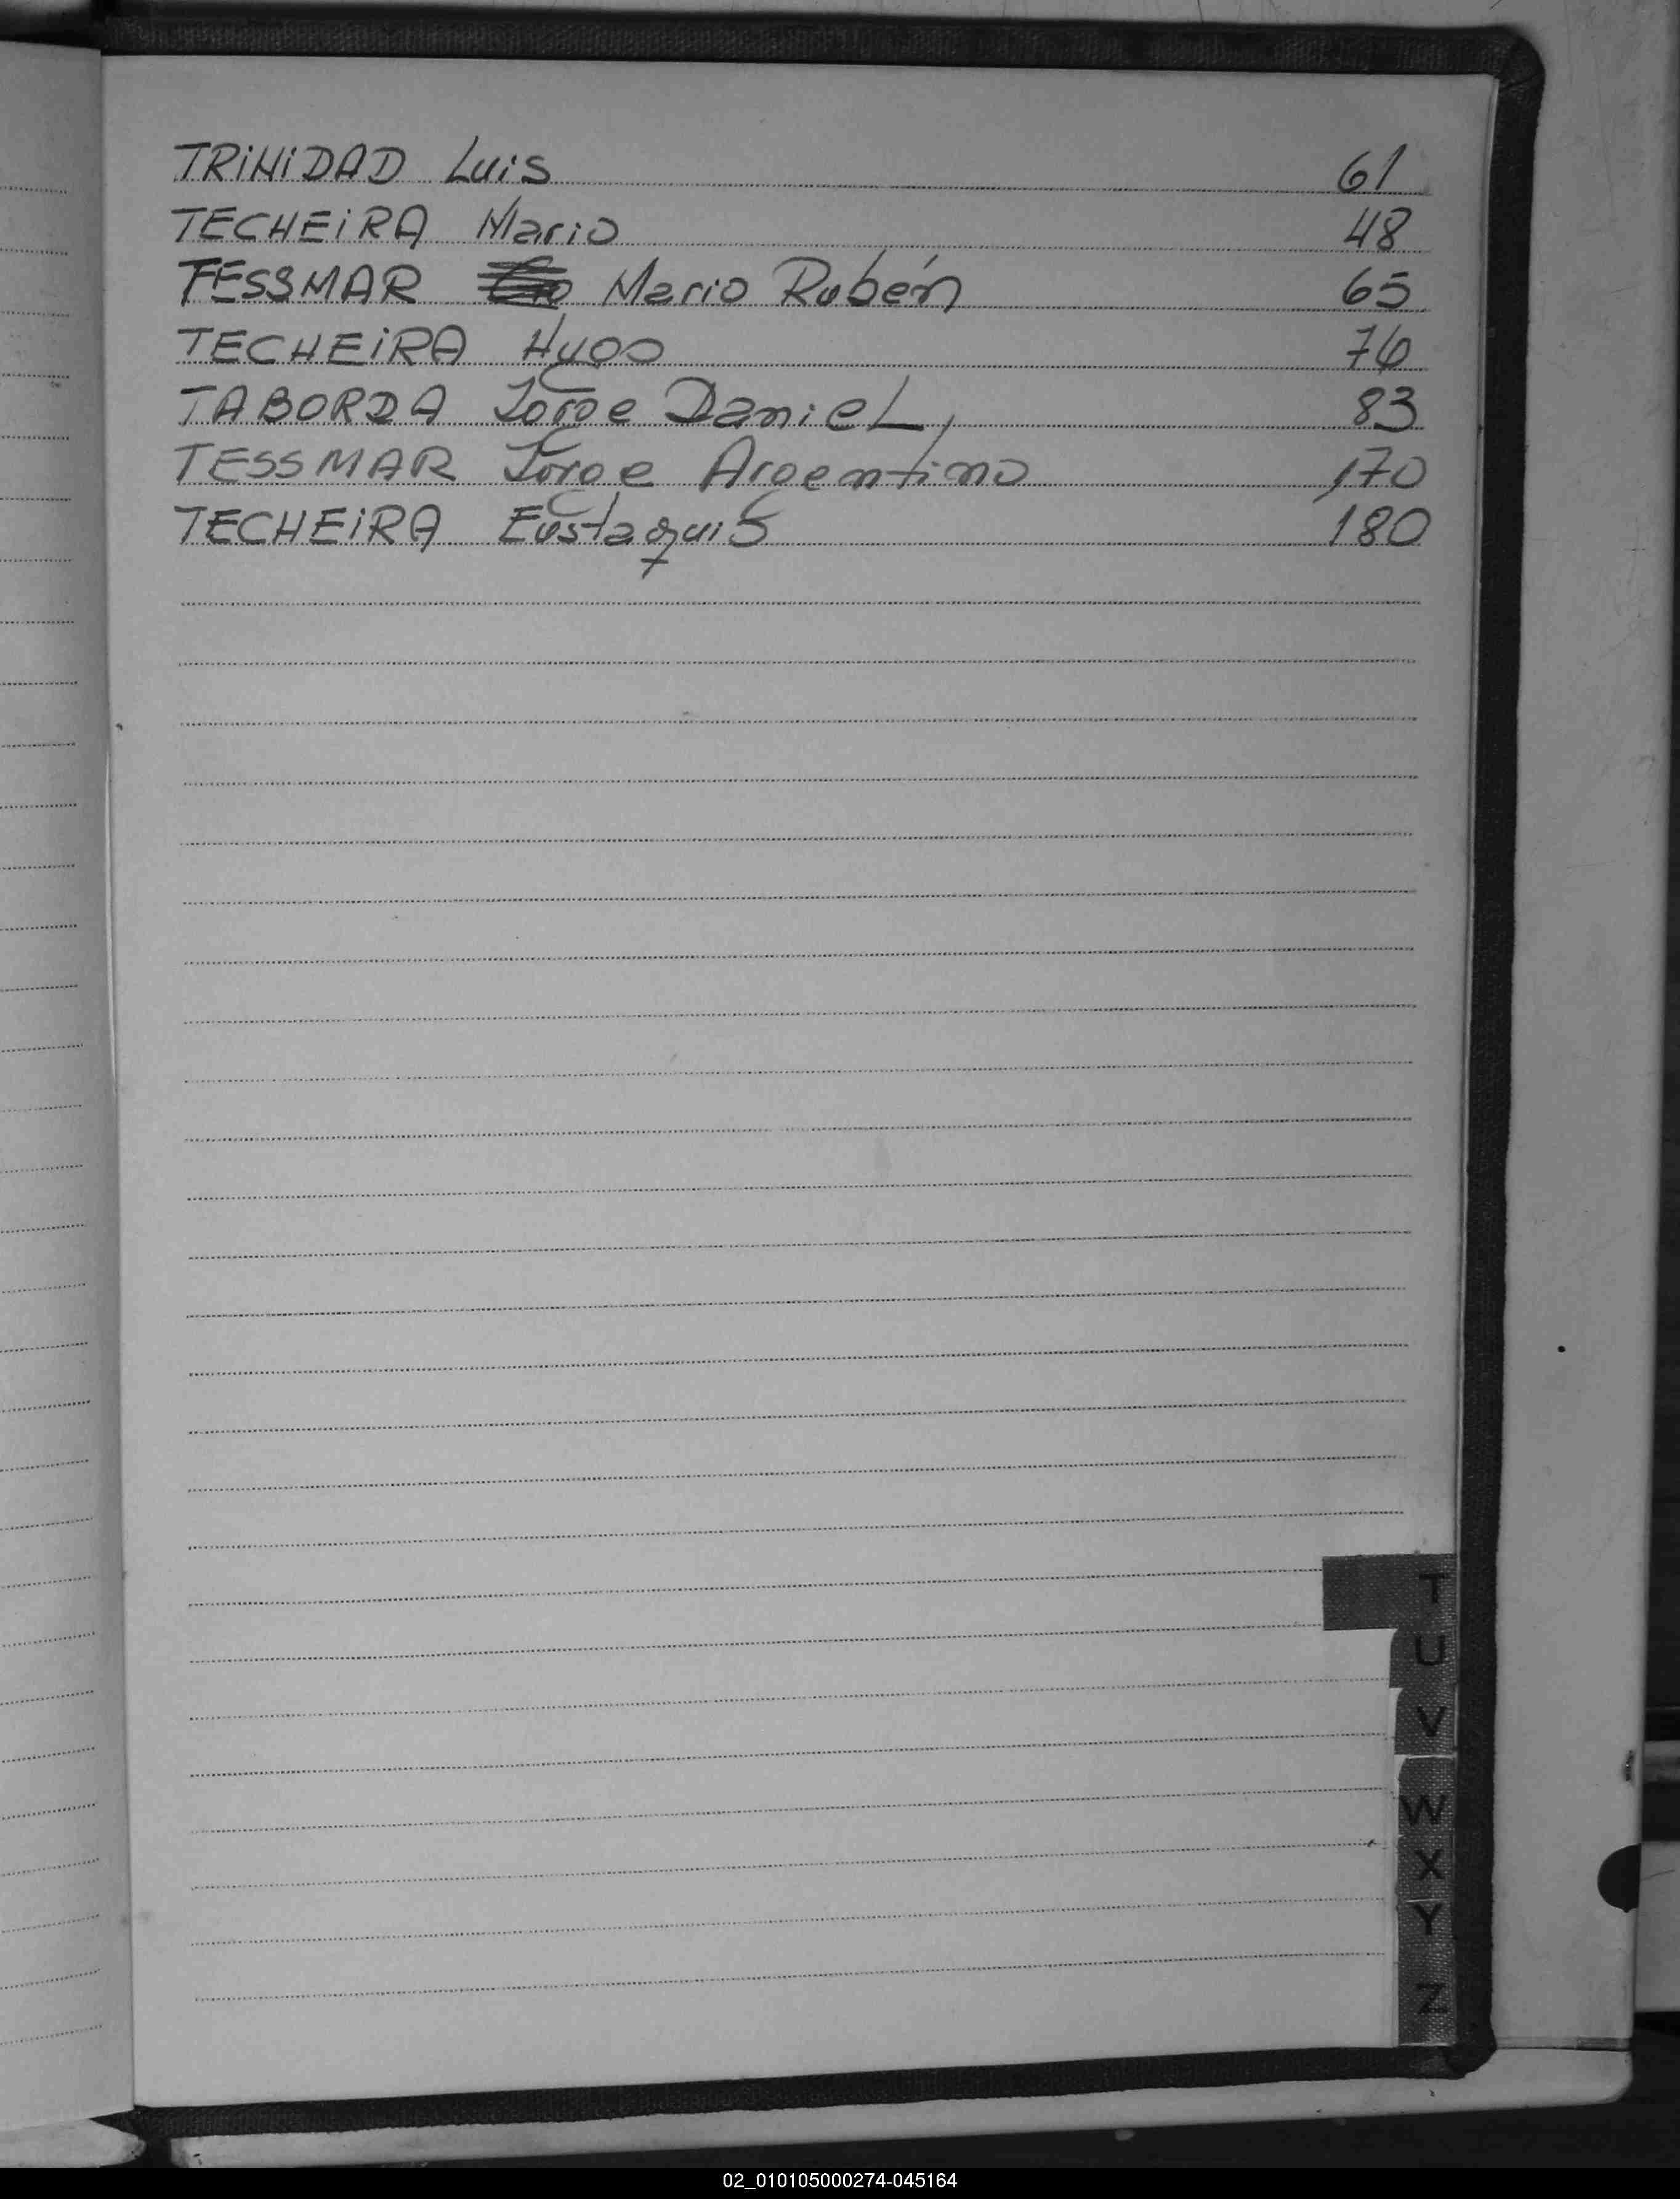 TRINIDAD Luis 61
TECHEIRA Mario 48
TESSMAR Mario Rubén 65
TECHEIRA Hugo 76
TABORDA Jorge Daniel 83
TESSMAR Jorge Argentino 170
TECHEIRA Eustaquio 180
T
U
V
W
X
Y
Z
02_010105000274-045164